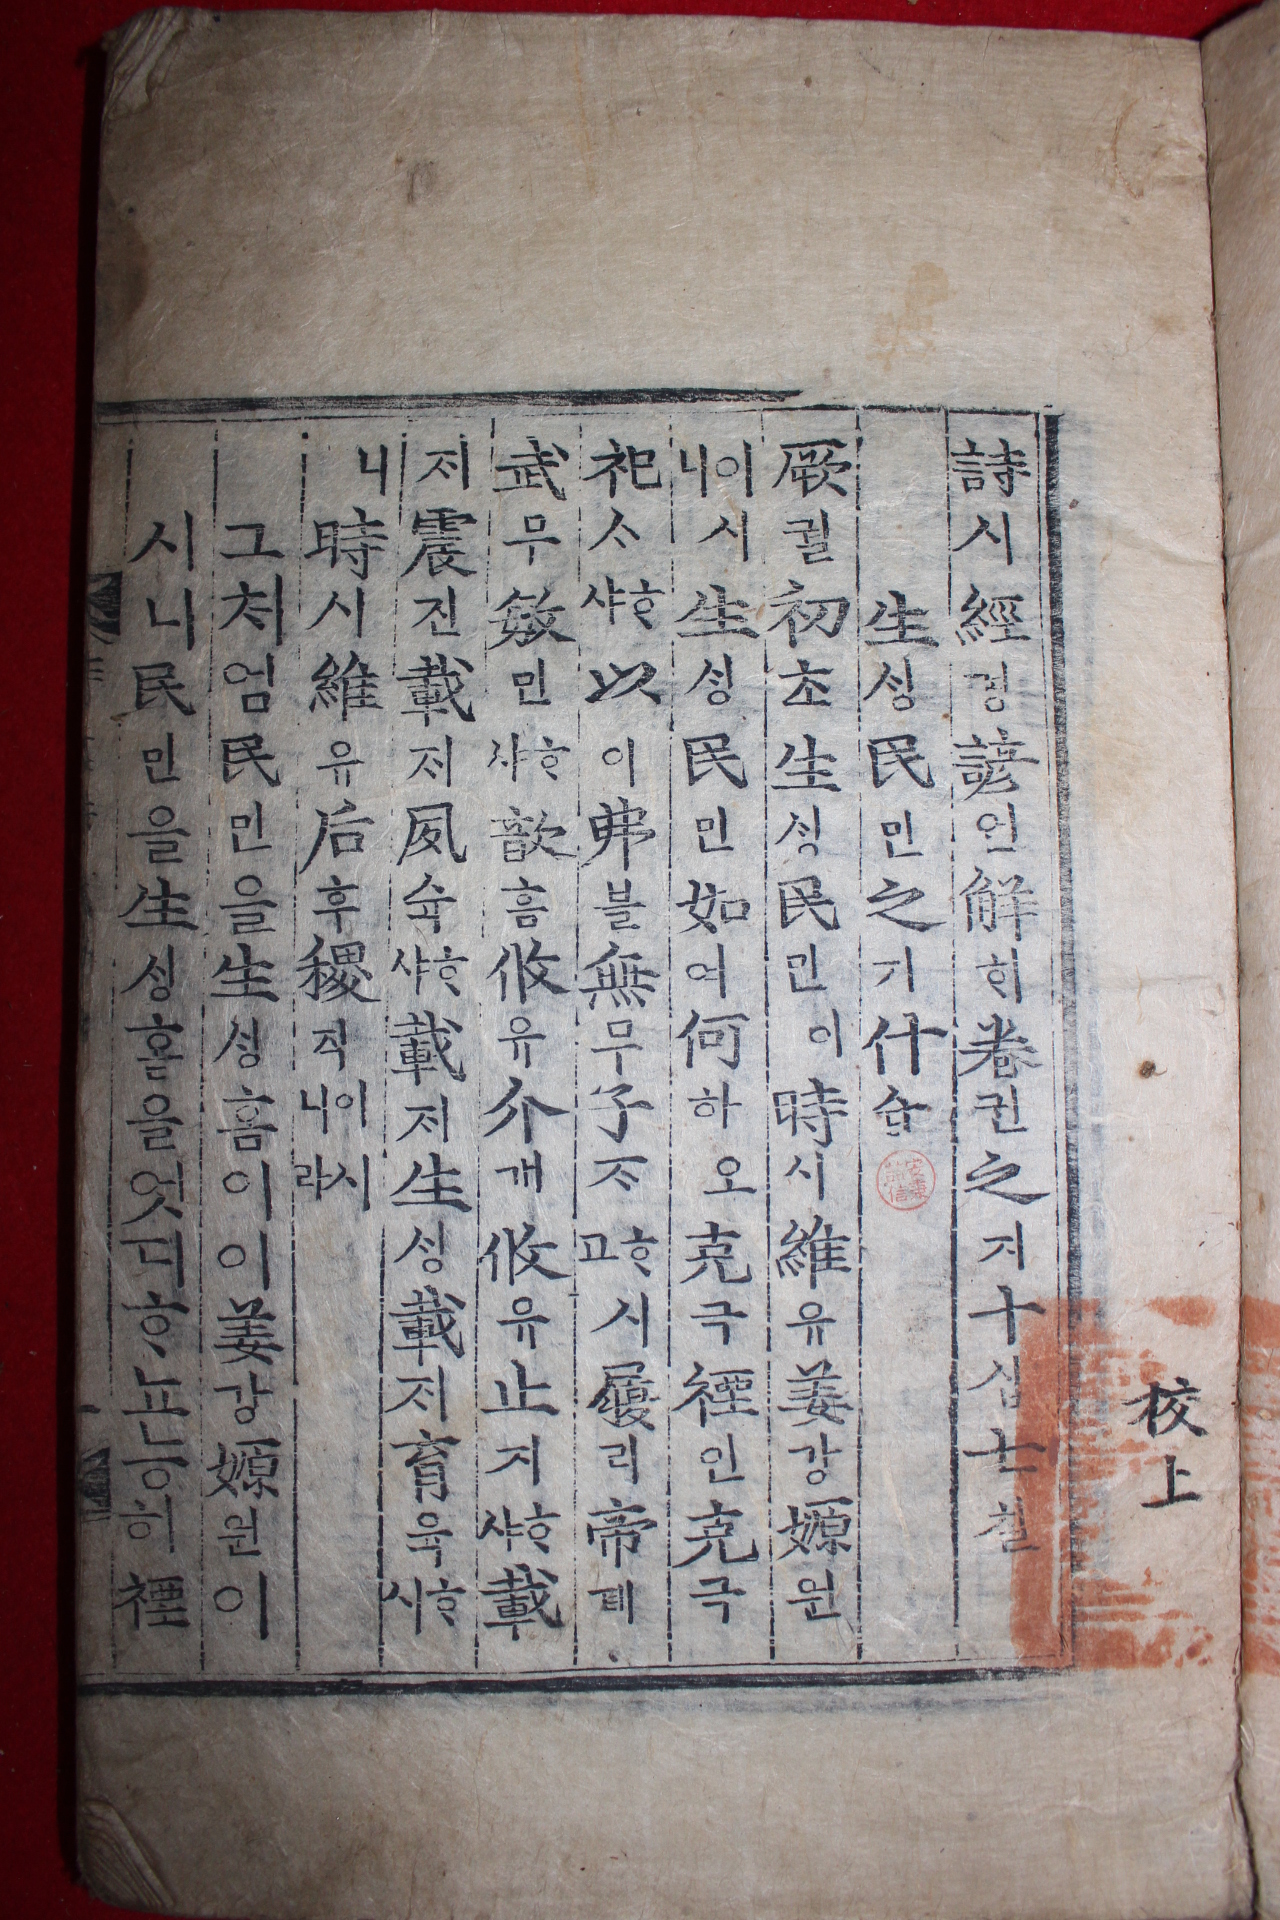 校上
詩시經경諺언解ᄒᆡ卷권之지十십七칠
生ᄉᆡᆼ民민之지什습
厥궐初초生ᄉᆡᆼ民민이時시維유姜강嫄원
이시니生ᄉᆡᆼ民민如여何하오克극禋인克극
祀ᄉᆞᄒᆞ샤以이弗블無무子ᄌᆞᄒᆞ시고履리帝뎨
武무敏민ᄒᆞ샤歆흠攸유介개攸유止지ᄒᆞ샤載
ᄌᆡ震진載ᄌᆡ夙슉ᄒᆞ샤載ᄌᆡ生ᄉᆡᆼ載ᄌᆡ育육ᄒᆞ시
니時시維유后후稷직이시니라
그처엄民민을生ᄉᆡᆼ홈이이姜강嫄원이
시니民민을生ᄉᆡᆼ홈을엇디ᄒᆞ뇨능히禋